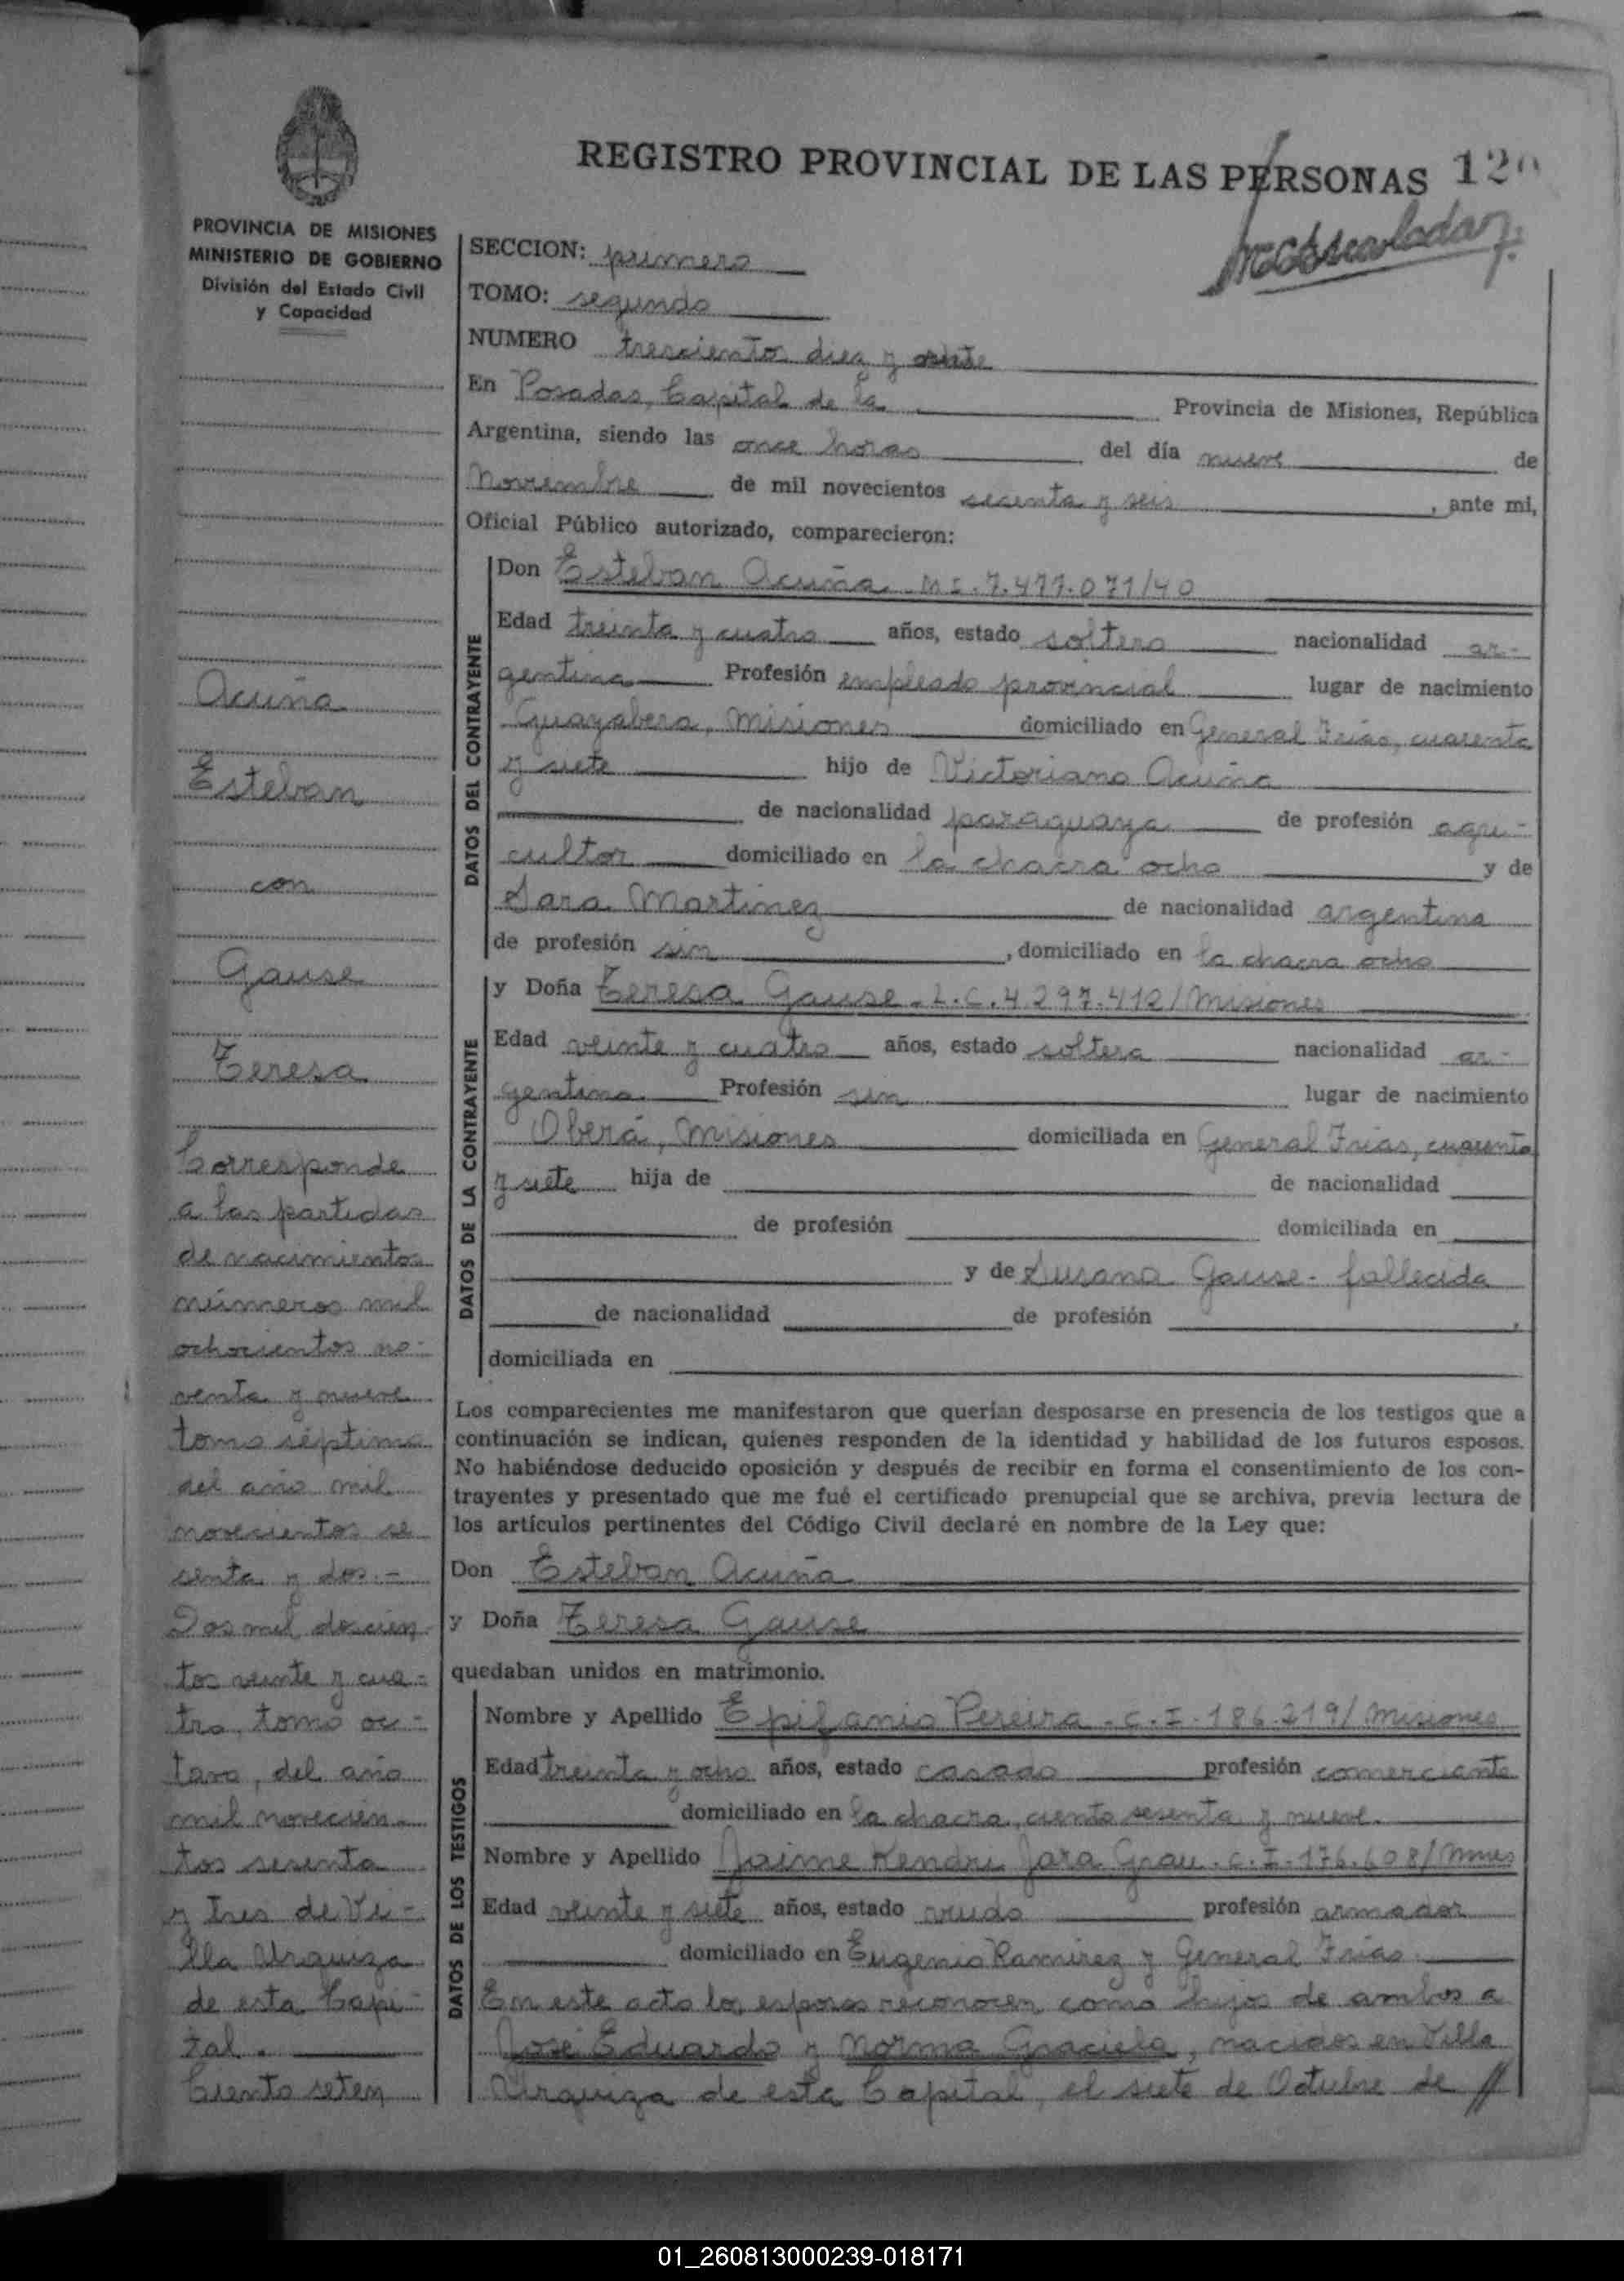 REGISTRO PROVINCIAL DE LAS PERSONAS 120
PROVINCIA DE MISIONES
MINISTERIO DE GOBIERNO
División del Estado Civil
y Capacidad
Acuña
Esteban
con
Gause
Teresa
Corresponde
a las partidas
de nacimientos
números mil
ochocientos no-
venta y nueve
tomo séptimo
del año mil
novecientos se
senta y dos.-
Dos mil doscien
tos veinte y cua-
tro, tomo oc-
tavo, del año
mil novecien-
tos sesenta
y tres de Vi-
lla Urquiza
de esta Capi-
tal.
Ciento seten
SECCION: primera
TOMO: segundo
NUMERO trescientos diez y
En Posadas, Capital de la Provincia de Misiones, República
Argentina, siendo las once horas del día nueve de
Noviembre de mil novecientos sesenta y seis, ante mi,
Oficial Público autorizado, comparecieron:
DATOS DEL CONTRAYENTE
Don Esteban Acuña - M I. 7.477.071/40
Edad treinta y cuatro años, estado soltero nacionalidad ar-
gentina Profesión empleado provincial lugar de nacimiento
Guayabera, Misiones domiciliado en General Frias, cuarenta
y siete hijo de Victoriano Acuña
de nacionalidad paraguaya de profesión agri-
cultor domiciliado en la chacra ocho y de
Sara Martinez de nacionalidad argentina
de profesión sin, domiciliado en la chacra ocho
DATOS DE LA CONTRAYENTE
y Doña Teresa Gause - L.C. 4.297.412/Misiones
Edad veinte y cuatro años, estado soltera nacionalidad ar-
gentina Profesión sin lugar de nacimiento
Oberá, Misiones domiciliada en General Frias, cuarenta
y siete hija de de nacionalidad
de profesión domiciliada en
y de Susana Gause - fallecida
de nacionalidad de profesión ,
domiciliada en
Los comparecientes me manifestaron que querían desposarse en presencia de los testigos que a
continuación se indican, quienes responden de la identidad y habilidad de los futuros esposos.
No habiéndose deducido oposición y después de recibir en forma el consentimiento de los con-
trayentes y presentado que me fué el certificado prenupcial que se archiva, previa lectura de
los artículos pertinentes del Código Civil declaré en nombre de la Ley que:
Don Esteban Acuña
y Doña Teresa Gause
quedaban unidos en matrimonio.
DATOS DE LOS TESTIGOS
Nombre y Apellido Epifanio Pereira - C.I. 186.219/Misiones
Edad treinta y ocho años, estado casado profesión comerciante
domiciliado en la chacra, ciento sesenta y nueve.
Nombre y Apellido Jaime Kendri Jara Grau. C.I. 176.608/Mnes
Edad veinte y siete años, estado viudo profesión armador
domiciliado en Eugenio Ramirez y General Frias.
En este acto los esposos reconocen como hijos de ambos a
José Eduardo y Norma Graciela, nacidos en Villa
Urquiza de esta Capital, el siete de Octubre de //
01_260813000239-018171